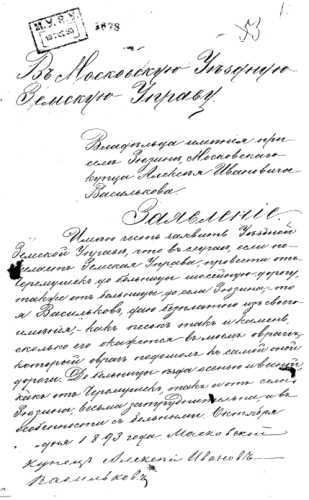 М.У.З.У.
3878
1.
Въ Московскую Уѣздную
Земскую Управу
Владѣльца имѣнія при
селѣ Зюзинѣ, Московскаго
купца Алексѣя Ивановича
Василькова.
Заявленіе.
Имѣю честь заявить Уѣздной
Земской Управѣ, что въ случаѣ, если по-
желаетъ Земская Управа провести отъ
Черемушекъ до больницы шоссейную дорогу,
также отъ больницы до села Зюзина, то
я Васильковъ, даю безплатно изъ своего
имѣнія, какъ песокъ такъ и камень,
сколько его окажется въ моемъ оврагѣ,
который оврагъ подошелъ къ самой той
дороги. До больницы ѣзда осенью и весной
какъ отъ Черемушекъ, такъ и отъ села
Зюзина весьма затруднительна, а въ
особенности съ больными. Октября
дня 1893 года Московской
купецъ Алексѣй Ивановъ
Васильковъ